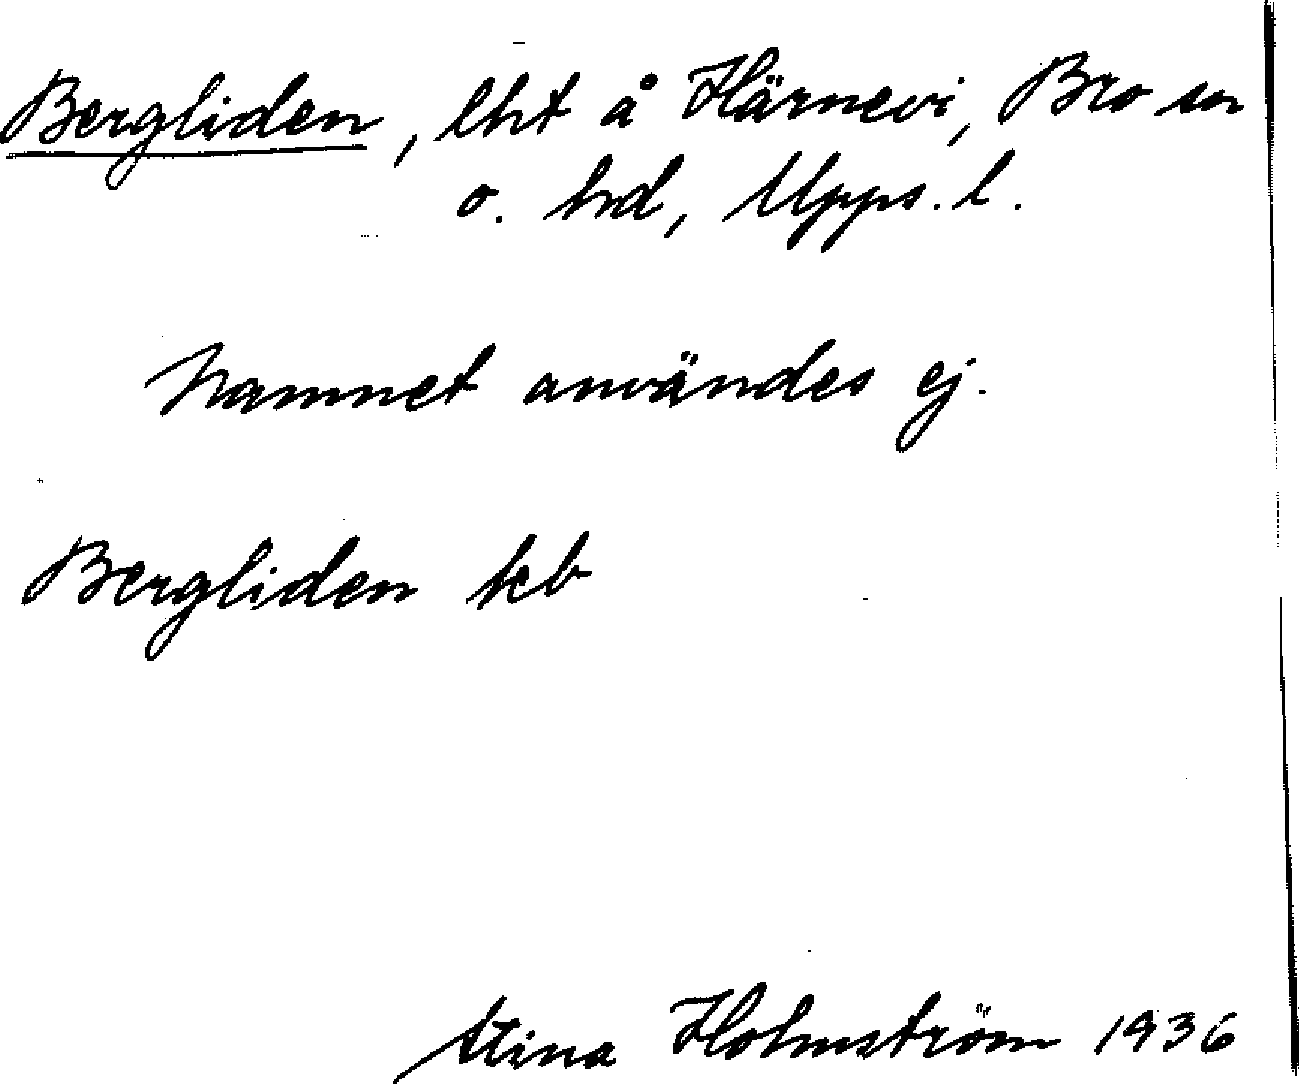 Bergliden, lht å Härnevi, Bro sn
o. hd, Upps. l.
Namnet användes ej.
Bergliden kb
Stina Holmström 1936